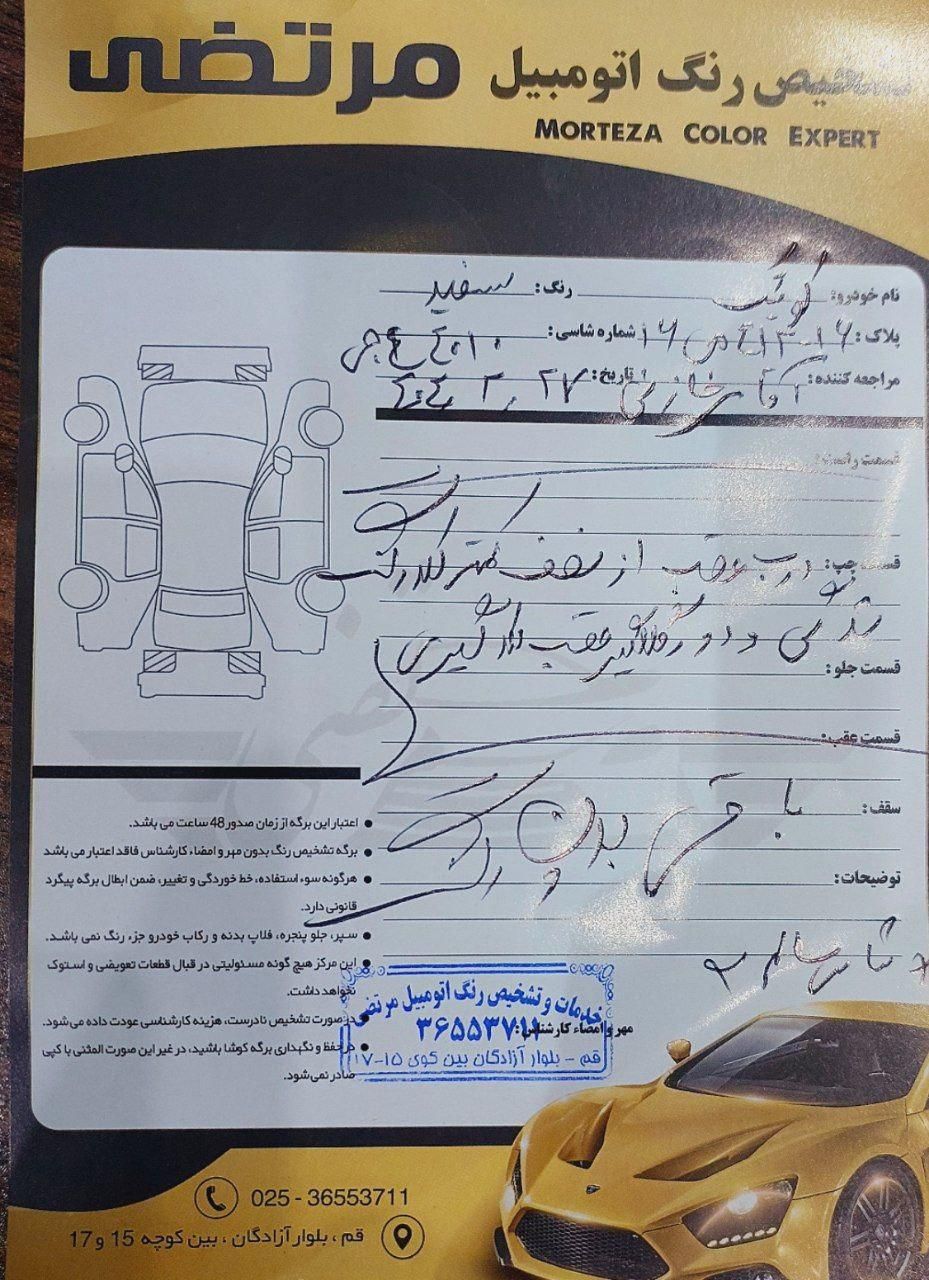 تشخیص رنگ اتومبیل مرتضی
MORTEZA COLOR EXPERT
نام خودرو: کوئیک رنگ: سفید
پلاک: شماره شاسی:
مراجعه کننده: آقای تاریخ:
قسمت راست:
قسمت چپ: درب عقب از نصف کمتر رنگ
شدگی و دور گلگیر عقب
قسمت جلو:
قسمت عقب:
سقف: باقی بدون رنگ
توضیحات:
سالم
اعتبار این برگه از زمان صدور 48 ساعت می باشد.
برگه تشخیص رنگ بدون مهر و امضاء کارشناس فاقد اعتبار می باشد
هرگونه سوء استفاده، خط خوردگی و تغییر، ضمن ابطال برگه پیگرد
قانونی دارد.
سپر، جلو پنجره، فلاپ بدنه و رکاب خودرو جزء رنگ نمی باشد.
این مرکز هیچ گونه مسئولیتی در قبال قطعات تعویضی و استوک
نخواهد داشت.
در صورت تشخیص نادرست، هزینه کارشناسی عودت داده می شود.
در حفظ و نگهداری برگه کوشا باشید، در غیر این صورت المثنی یا کپی
صادر نمی شود.
مهر و امضاء کارشناس:
خدمات و تشخیص رنگ اتومبیل مرتضی
۳۶۵۵۳۷۱۱
قم - بلوار آزادگان بین کوی ۱۵-۱۷
025 - 36553711
قم ، بلوار آزادگان ، بین کوچه 15 و 17